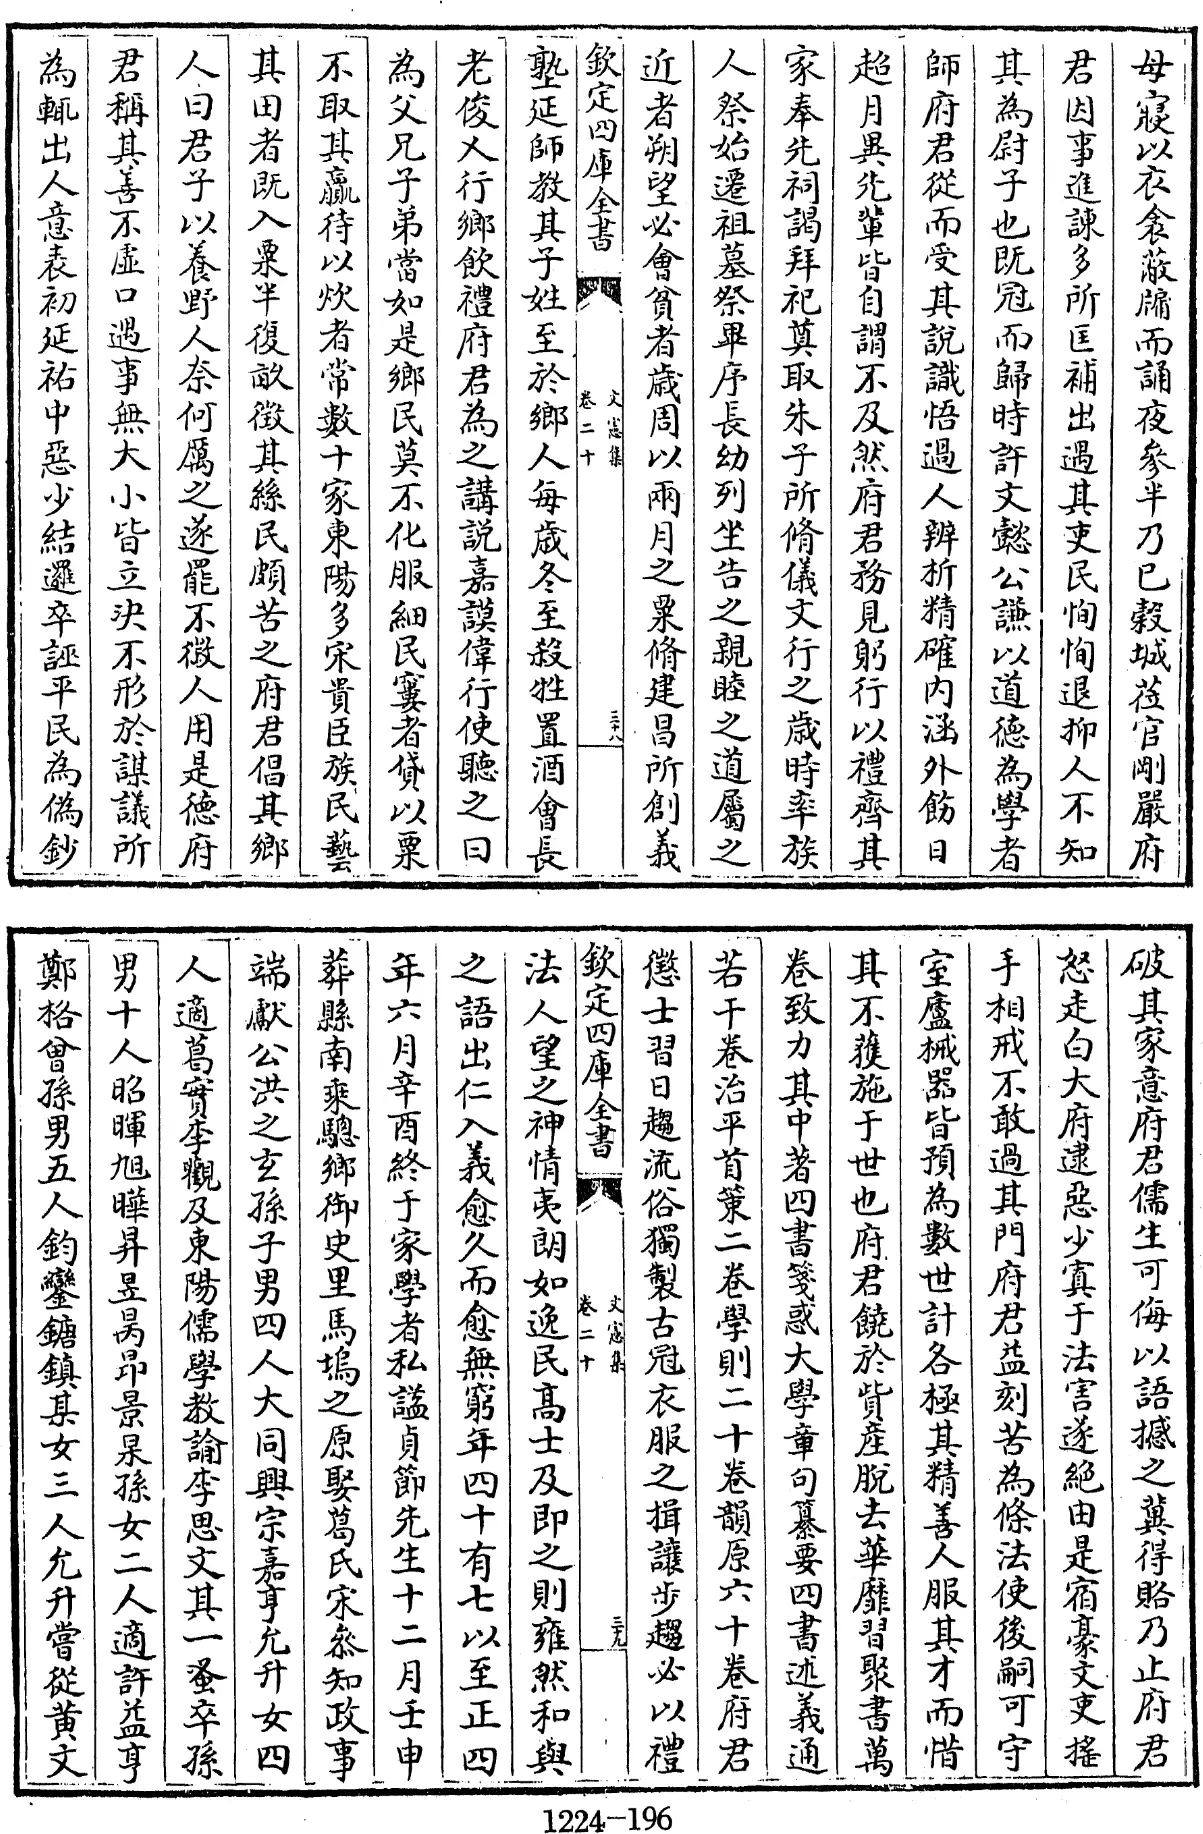 母寢以衣衾蔽牖而誦夜參半乃已穀城莅官剛嚴府
君因事進諫多所匡補出遇其吏民恂恂退抑人不知
其為尉子也既冠而歸時許文懿公謙以道德為學者
師府君從而受其說識悟過人辨析精確内涵外飭日
超月異先輩皆自謂不及然府君務見躬行以禮齊其
家奉先祠謁拜祀奠取朱子所脩儀文行之歲時率族
人祭始遷祖墓祭畢序長幼列坐告之親睦之道屬之
近者朔望必會貧者歲周以兩月之粟脩建昌所創義
欽定四庫全書
文憲集
卷二十
三十八
塾延師教其子姓至於鄉人每歲冬至殺牲置酒會長
老俊乂行鄉飲禮府君為之講說嘉謨偉行使聽之曰
為父兄子弟當如是鄉民莫不化服細民窶者貸以粟
不取其贏待以炊者常數十家東陽多宋貴臣族民藝
其田者既入粟半復畝徵其絲民頗苦之府君倡其鄉
人曰君子以養野人奈何厲之遂罷不徵人用是德府
君稱其善不虛口遇事無大小皆立決不形於謀議所
為輒出人意表初延祐中惡少結邏卒誣平民為偽鈔
破其家意府君儒生可侮以語撼之冀得賂乃止府君
怒走白大府逮惡少寘于法害遂絕由是宿豪文吏搖
手相戒不敢過其門府君益刻苦為條法使後嗣可守
室廬械器皆預為數世計各極其精善人服其才而惜
其不獲施于世也府君饒於貲產脫去華靡習聚書萬
卷致力其中著四書箋惑大學章句纂要四書述義通
若干卷治平首策二卷學則二十卷韻原六十卷府君
懲士習日趨流俗獨製古冠衣服之揖讓步趨必以禮
欽定四庫全書
文憲集
卷二十
三十九
法人望之神情夷朗如逸民高士及即之則雍然和與
之語出仁入義愈久而愈無窮年四十有七以至正四
年六月辛酉終于家學者私諡貞節先生十二月壬申
葬縣南乘驄鄉御史里馬塢之原娶葛氏宋叅知政事
端獻公洪之玄孫子男四人大同興宗嘉亨允升女四
人適葛實李觀及東陽儒學教諭李思文其一蚤卒孫
男十人昭暉旭曄昇昱昺昂景杲孫女二人適許益亨
鄭格曾孫男五人鈞鑾鏞鎮某女三人允升嘗從黃文
1224-196